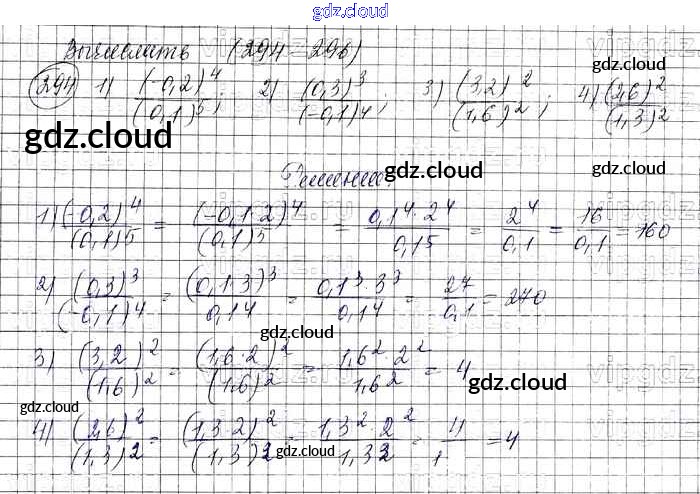 gdz.cloud
Вычислить (294-296)
294 1) (-0,2)^4/(0,1)^5; 2) (0,3)^3/(-0,1)^4; 3) (3,2)^2/(1,6)^2; 4) (2,6)^2/(1,3)^2
gdz.cloud gdz.cloud
Решение.
1) (-0,2)^4/(0,1)^5 = (-0,1·2)^4/(0,1)^5 = 0,1^4·2^4/0,1^5 = 2^4/0,1 = 16/0,1 = 160
2) (0,3)^3/(-0,1)^4 = (0,1·3)^3/0,1^4 = 0,1^3·3^3/0,1^4 = 27/0,1 = 270
gdz.cloud
3) (3,2)^2/(1,6)^2 = (1,6·2)^2/(1,6)^2 = 1,6^2·2^2/1,6^2 = 4
gdz.cloud
gdz.cloud
4) (2,6)^2/(1,3)^2 = (1,3·2)^2/(1,3)^2 = 1,3^2·2^2/1,3^2 = 4/1 = 4
gdz.cloud